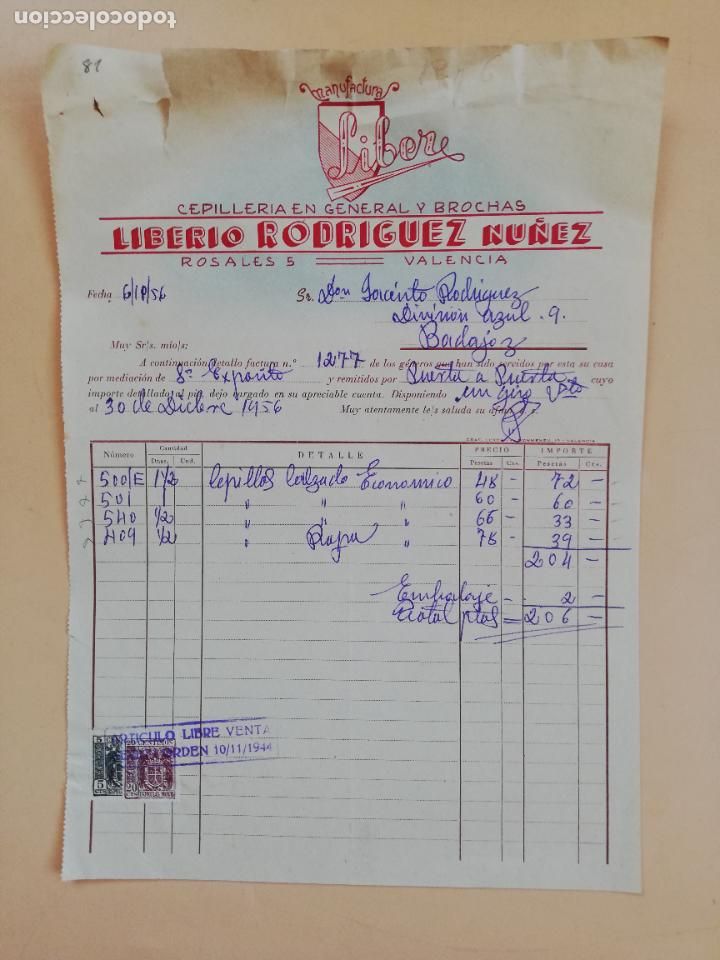 todocoleccion
81
Manufactura
Libere
CEPILLERIA EN GENERAL Y BROCHAS
LIBERIO RODRIGUEZ NUÑEZ
ROSALES 5 VALENCIA
Fecha 6/10/56 Sr. Don Jacinto Rodriguez
División azul. 9.
Muy Sr/s. mío/s; Badajoz
A continuación detallo factura n.º 1277 de los géneros que han sido servidos por esta su casa
por mediación de Sr. Exposito y remitidos por Puerta a Puerta cuyo
importe detallado al pie, dejo cargado en su apreciable cuenta. Disponiendo un giro
al 30 de Dicbre 1956 Muy atentamente le/s saluda su
Número Cantidad DETALLE PRECIO IMPORTE
Dnas. Und. Pesetas Cts. Pesetas Cts.
500/E 1 1/2 Cepillos Calzado Economico 48 - 72 -
501 1 " " " 60 - 60 -
540 1/2 " " " 66 - 33 -
409 1/2 " Ropa " 78 - 39 -
204 -
Embalaje - 2 -
Total ptas = 206 -
ARTICULO LIBRE VENTA
ORDEN 10/11/1944
5 5
20